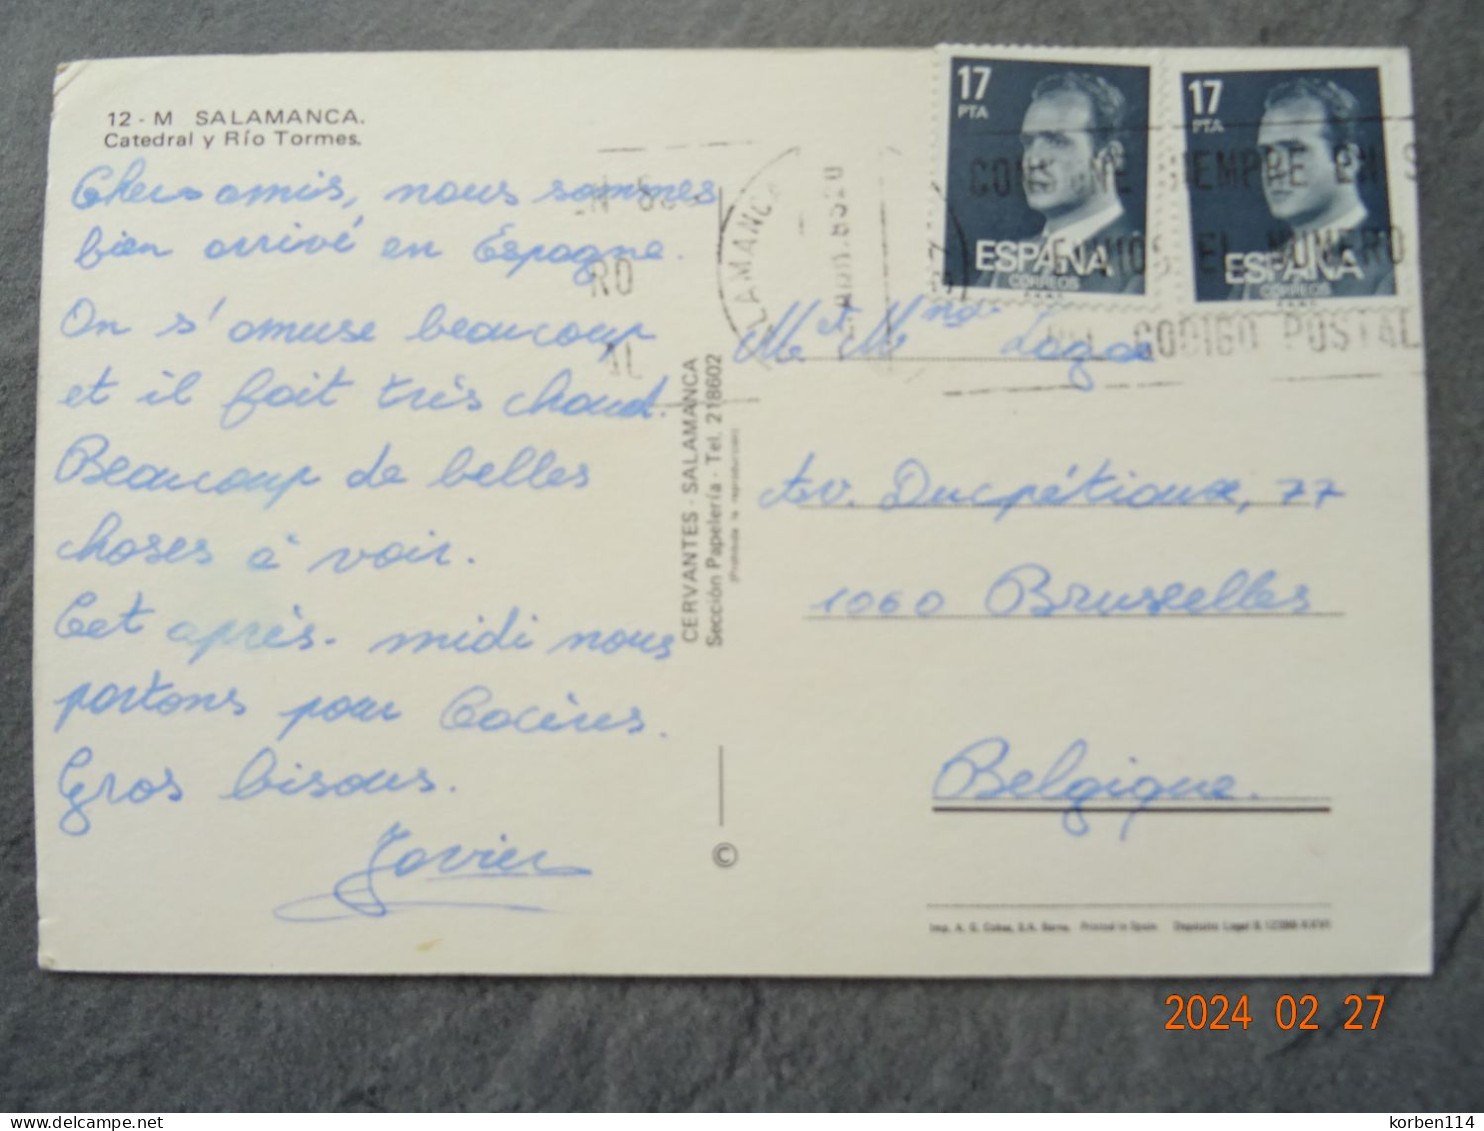 12 - M SALAMANCA.
Catedral y Río Tormes.
Chers amis, nous sommes
bien arrivé en Espagne.
On s'amuse beaucoup
et il fait très chaud.
Beaucoup de belles
choses à voir.
Cet après-midi nous
partons pour Cacères.
Gros bisous.
Javier
CERVANTES - SALAMANCA
Sección Papelería - Tel. 218602
(Prohibida la reproducción)
©
17
PTA
ESPAÑA
CORREOS
17
PTA
ESPAÑA
CORREOS
SIEMPRE EN S
EL NUMERO
DEL CODIGO POSTAL
RO
AL
Mr et Mme
Av. Ducpétiaux, 77
1060 Bruxelles
Belgique.
Printed in Spain
Depósito Legal B.
2024 02 27
korben114